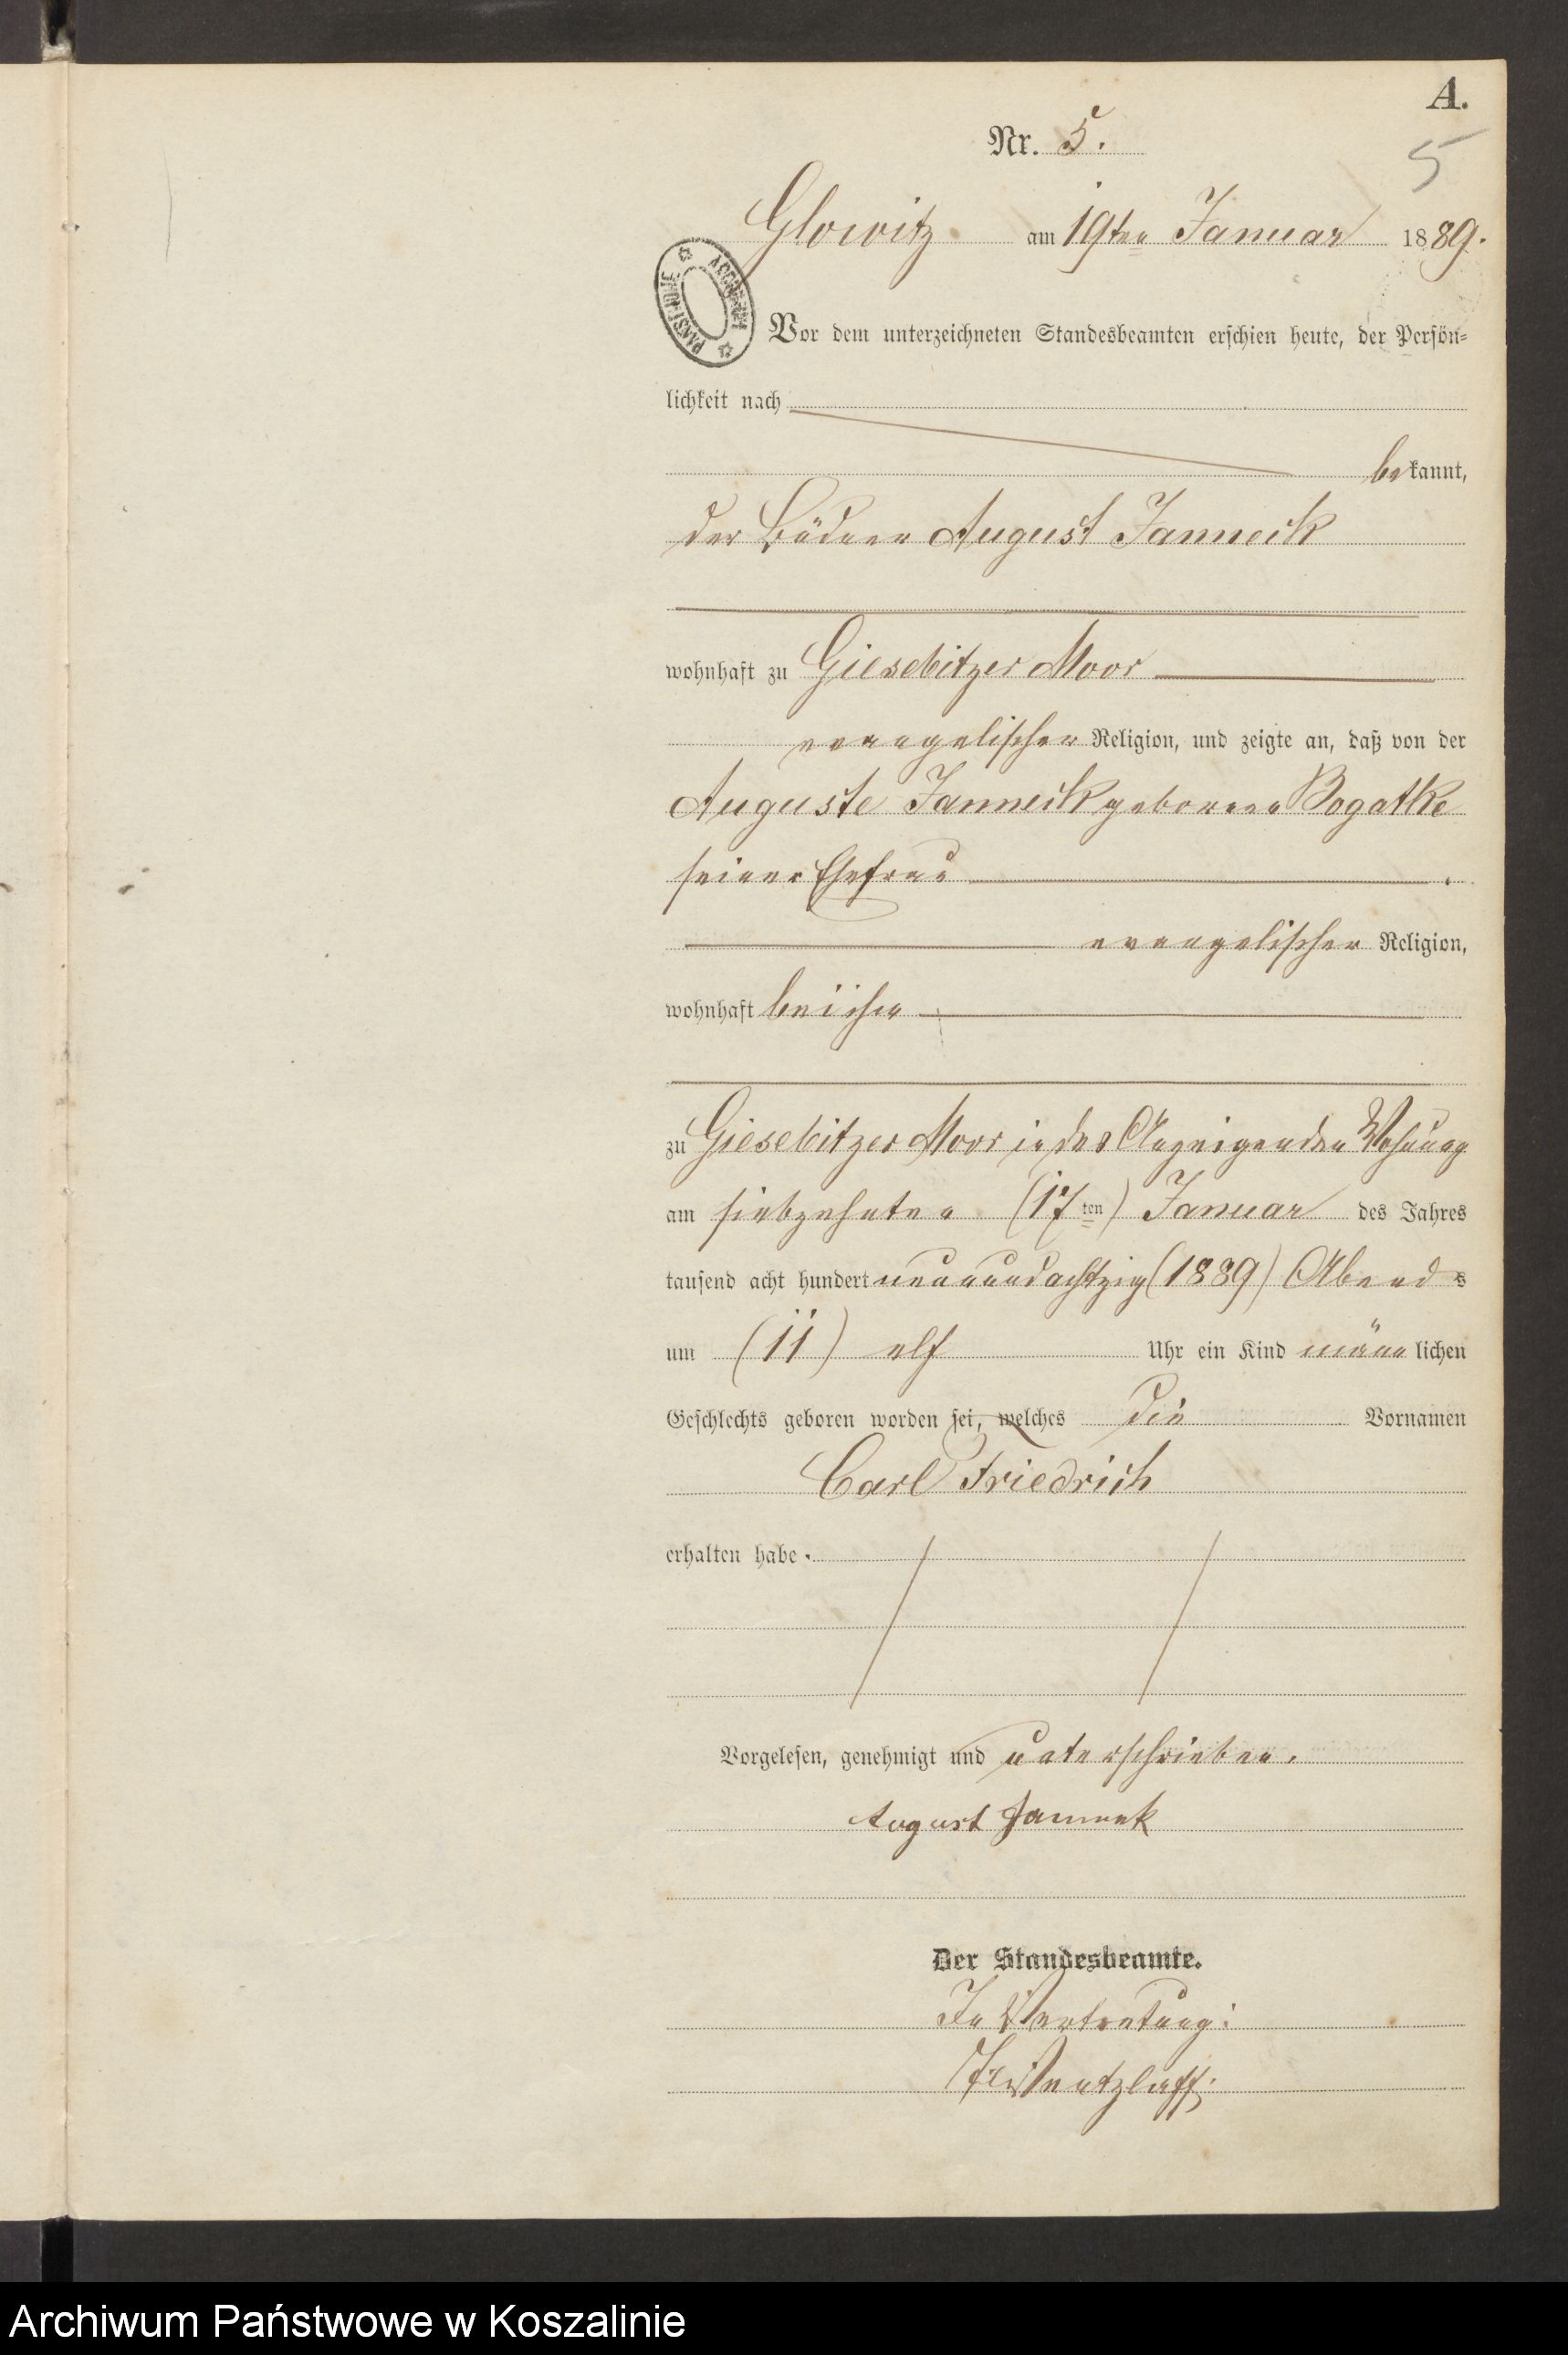 A.
Nr. 5.
5
Glowitz am 19ten Januar 1889.
Vor dem unterzeichneten Standesbeamten erschien heute, der Persön-
lichkeit nach
bekannt,
der Büdner August Janneck
wohnhaft zu Giesebitzer Moor
evangelischer Religion, und zeigte an, daß von der
Auguste Janneck geborene Bogatke
seiner Ehefrau
evangelischer Religion,
wohnhaft bei ihm
zu Giesebitzer Moor in des Anzeigenden Wohnung
am siebzehnten (17ten) Januar des Jahres
tausend acht hundert neunundachtzig (1889) Abends
um (11) elf Uhr ein Kind männlichen
Geschlechts geboren worden sei, welches die Vornamen
Carl Friedrich
erhalten habe.
Vorgelesen, genehmigt und unterschrieben.
August Janneck
Der Standesbeamte.
In Vertretung:
Wentzlaff.
Archiwum Państwowe w Koszalinie